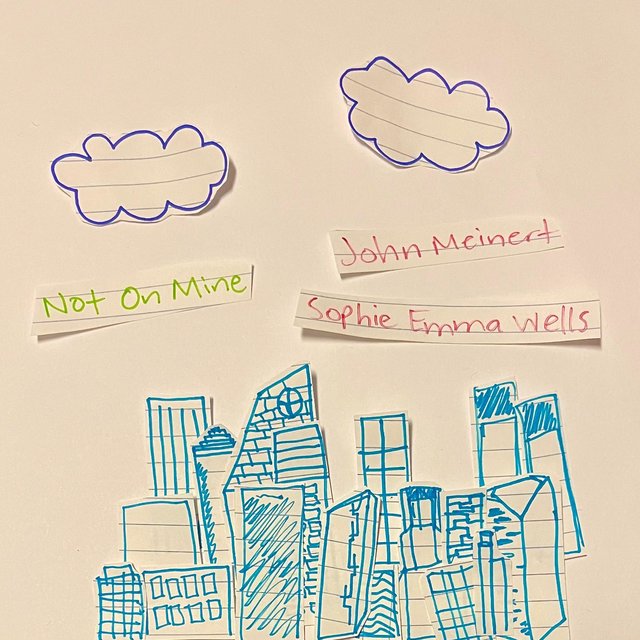 Not On Mine
John Meinert
Sophie Emma Wells